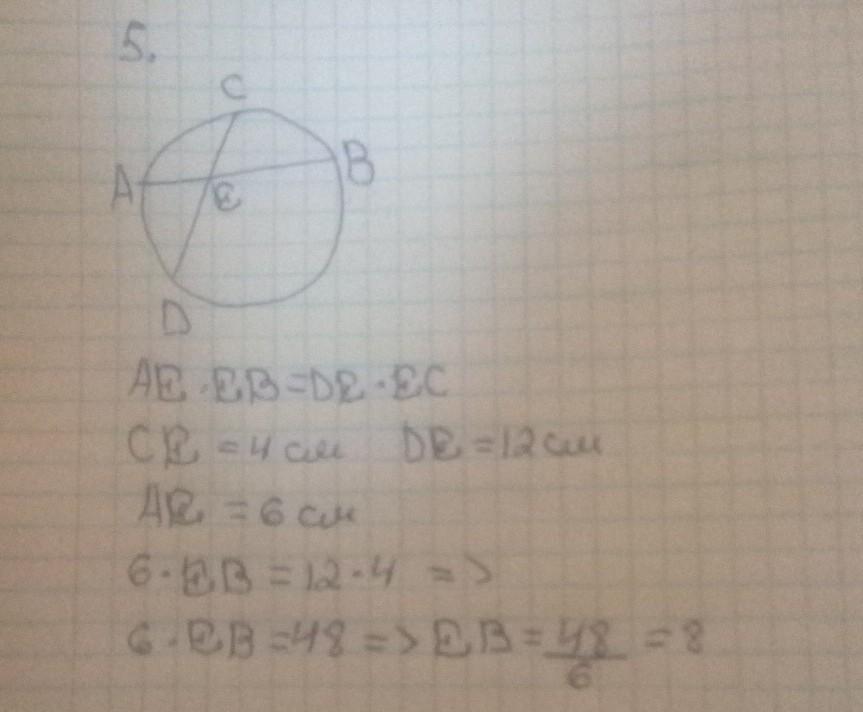 5.
C
A
B
E
D
AE · EB = DE · EC
CE = 4 см DE = 12 см
AE = 6 см
6 · EB = 12 · 4 =>
6 · EB = 48 => EB = 48/6 = 8